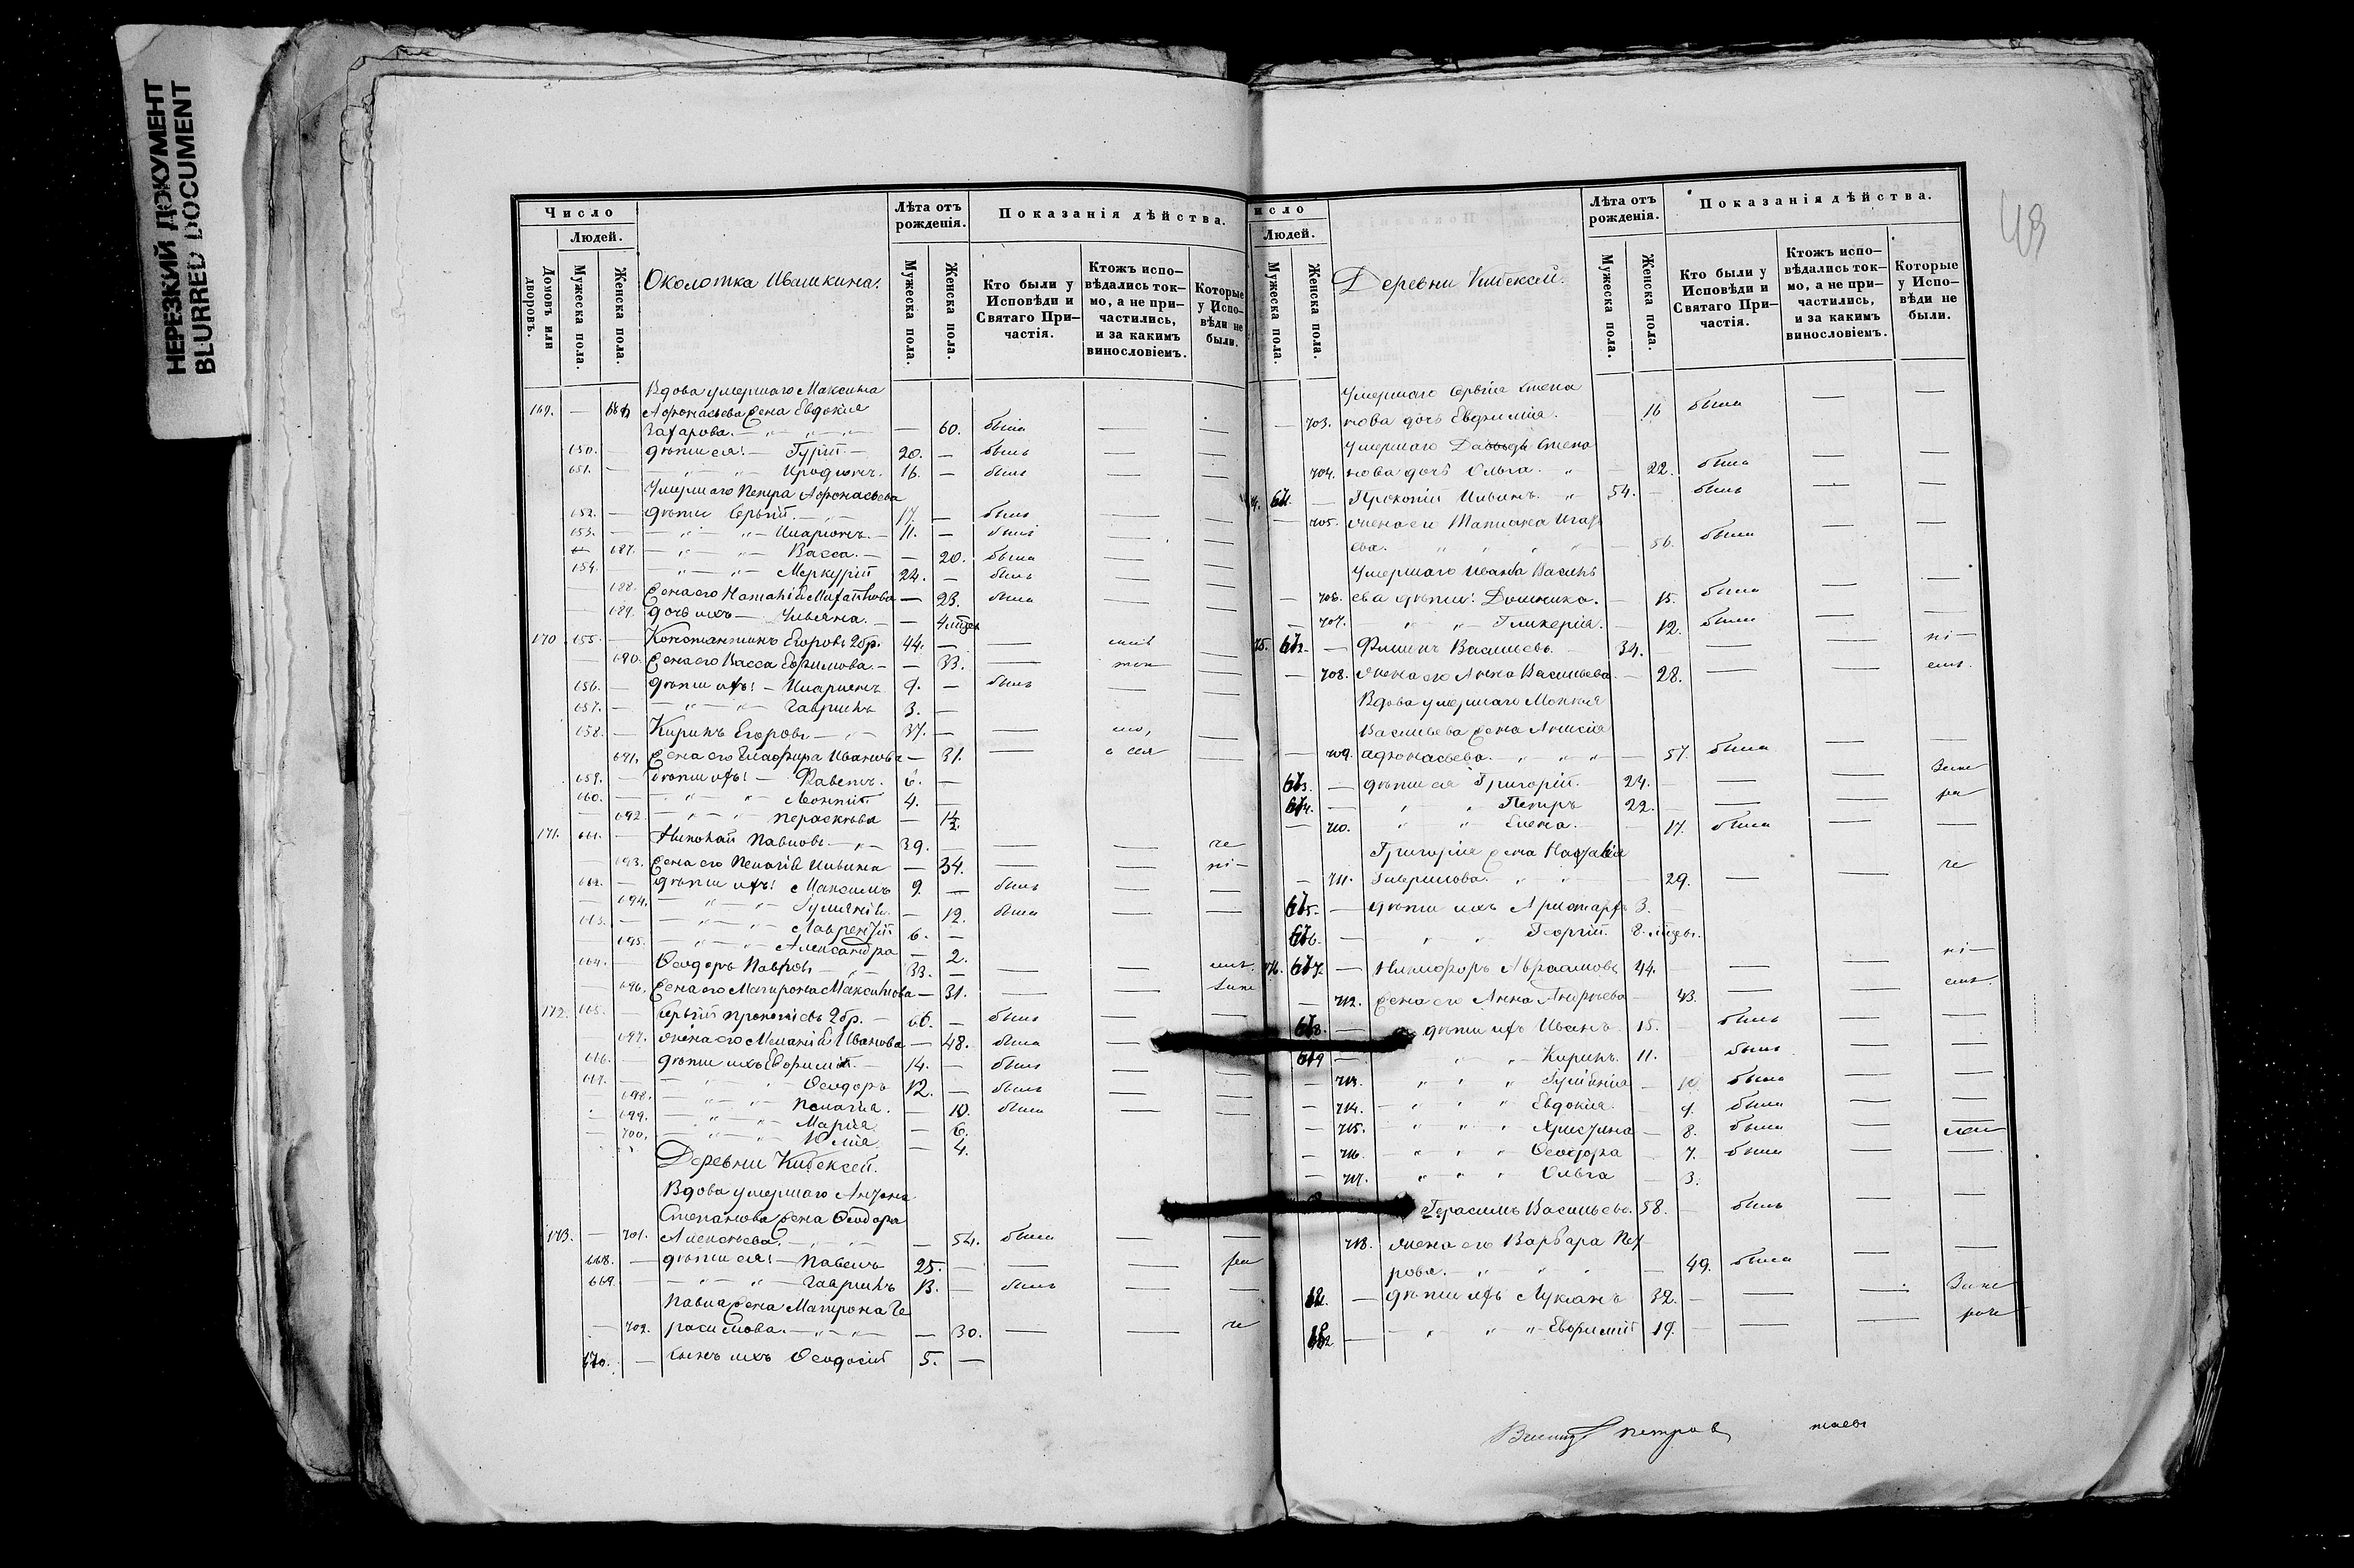 НЕРЕЗКИЙ ДОКУМЕНТ
BLURRED DOCUMENT
Число
Людей.
Домовъ или дворовъ.
Мужеска пола.
Женска пола.
Околотка Ивашкина.
Лѣта отъ рожденія.
Мужеска пола.
Женска пола.
Показанія дѣйства.
Кто были у Исповѣди и Святаго При-частія.
Ктожъ испо-вѣдались ток-мо, а не при-частились, и за какимъ винословіемъ.
Которые у Испо-вѣди не были.
Вдова умершаго Максима
169. — Афонасьева жена Евдокия
Захарова. — 60. была — —
650. — дѣти ея: — Гурій — 20. — былъ — —
651. — Иродіонъ. 16. — былъ — —
Умершаго Петра Афонасьева
652. — дѣти Сергій 17. — былъ — —
653. — Иларіонъ. — 11. — былъ — —
— 687. — Васса. — — 20. была — —
654. — Меркурій 24. — былъ — —
— 688. Жена его Наталія Михайлова — 23. была — —
— 689. дочь ихъ — Ульяна. — —
170 655. — Константинъ Егоровъ 2бр. 44. — — —
— 690. Жена его Васса Ефимова. — — 33. — —
656. — дѣти ихъ: — Иларіонъ 9. — былъ — —
657. — Гаврилъ 3. —
658. — Кирилъ Егоровъ — 37. — — —
691. Жена его Глафира Иванова — 31. — —
659. — дѣти ихъ: — Павелъ. 6. —
660. — Леонтій 4. —
— 692. Параскева —
171. 661. — Николай Павловъ 39. — — — не
— 693. Жена его Пелагія Ильина — 34. — —
662. — дѣти ихъ: Максимъ 9 — былъ — —
— 694. Гуліянія — 12. была — —
663. — Лаврентій 6. —
— 695. Александра — 2.
664. — Ѳеодоръ Павловъ 33. — — —
— 696. Жена его Матрона Максимова — 31. — —
172. 665. — Сергій Прокопіевъ 2бр. — 66. — былъ — —
697. Жена его Меланія Иванова — 48. была — —
666. — дѣти ихъ Евфимій. — 14. — былъ — —
667. — Ѳеодоръ 12. — былъ — —
— 698. Пелагія. — 10. была — —
— 699. Марія — 6.
— 700. Юлія — 4.
Деревни Кибексей.
Вдова умершаго Антона
Степанова жена Ѳеодора
173. — 701. Алексѣева. — 54. была — —
668. — дѣти ея: — Павелъ 25. — — —
669. — Гаврилъ 13. — былъ — —
Павла жена Матрона Ге
— 702. расимова. — 30. — — не
670. — Сынъ ихъ Ѳеодосій 5. —
исло
Людей.
Мужеска пола.
Женска пола.
Деревни Кибексей.
Лѣта отъ рожденія.
Мужеска пола.
Женска пола.
Показанія дѣйства.
Кто были у Исповѣди и Святаго При-частія.
Ктожъ испо-вѣдались ток-мо, а не при-частились, и за какимъ винословіемъ.
Которые у Испо-вѣди не были.
Умершаго Сергія Степа
— 703. нова дочь Евфимія. — 16 была — —
Умершаго Давыда Степа
704. нова дочь Ольга. — 22. была — —
671. — Прокопій Ильинъ. 54. — былъ — —
— 705. Жена его Татіана
ева. — 56. была — —
Умершаго Ивана Василь
— 706. ева дѣти: Домника. — 15. была — —
— 707. Гликерія. — 12. была — —
75. 672. — Филипъ Васильевъ. 34. — —
— 708. Жена его Анна Васильева. — 28. —
Вдова умершаго Моккея
Васильева жена Анисія
— 709. Афонасьева. — 57. была — —
673. — дѣти ея Григорій. 24. — — —
674. — Петръ 22. — —
— 710. Елена. — 17. была — —
Григорія жена Наталія
— 711. Гаврилова. — 29. — — не
675. — дѣти ихъ Аристархъ 3.
676. — Георгій. 8.
677. — Никифоръ Авраамовъ 44. — — —
— 712. Жена его Анна Андреева — 43. — —
678. — дѣти ихъ Иванъ 15. — былъ — —
679 — Кирилъ. 11. былъ — —
— 713. Гуліянія — 10 была — —
— 714. Евдокія. 9. была — —
— 715. Христина — 8. была —
— 716. Ѳеодора 7. была — —
— 717. Ольга — 3.
Герасимъ Васильевъ. 58. — былъ — —
718. Жена его Варвара Пет
рова. — 49. была — —
— дѣти ихъ Лукіанъ 32. — — —
— Евфимій 19. — — —
Петровъ